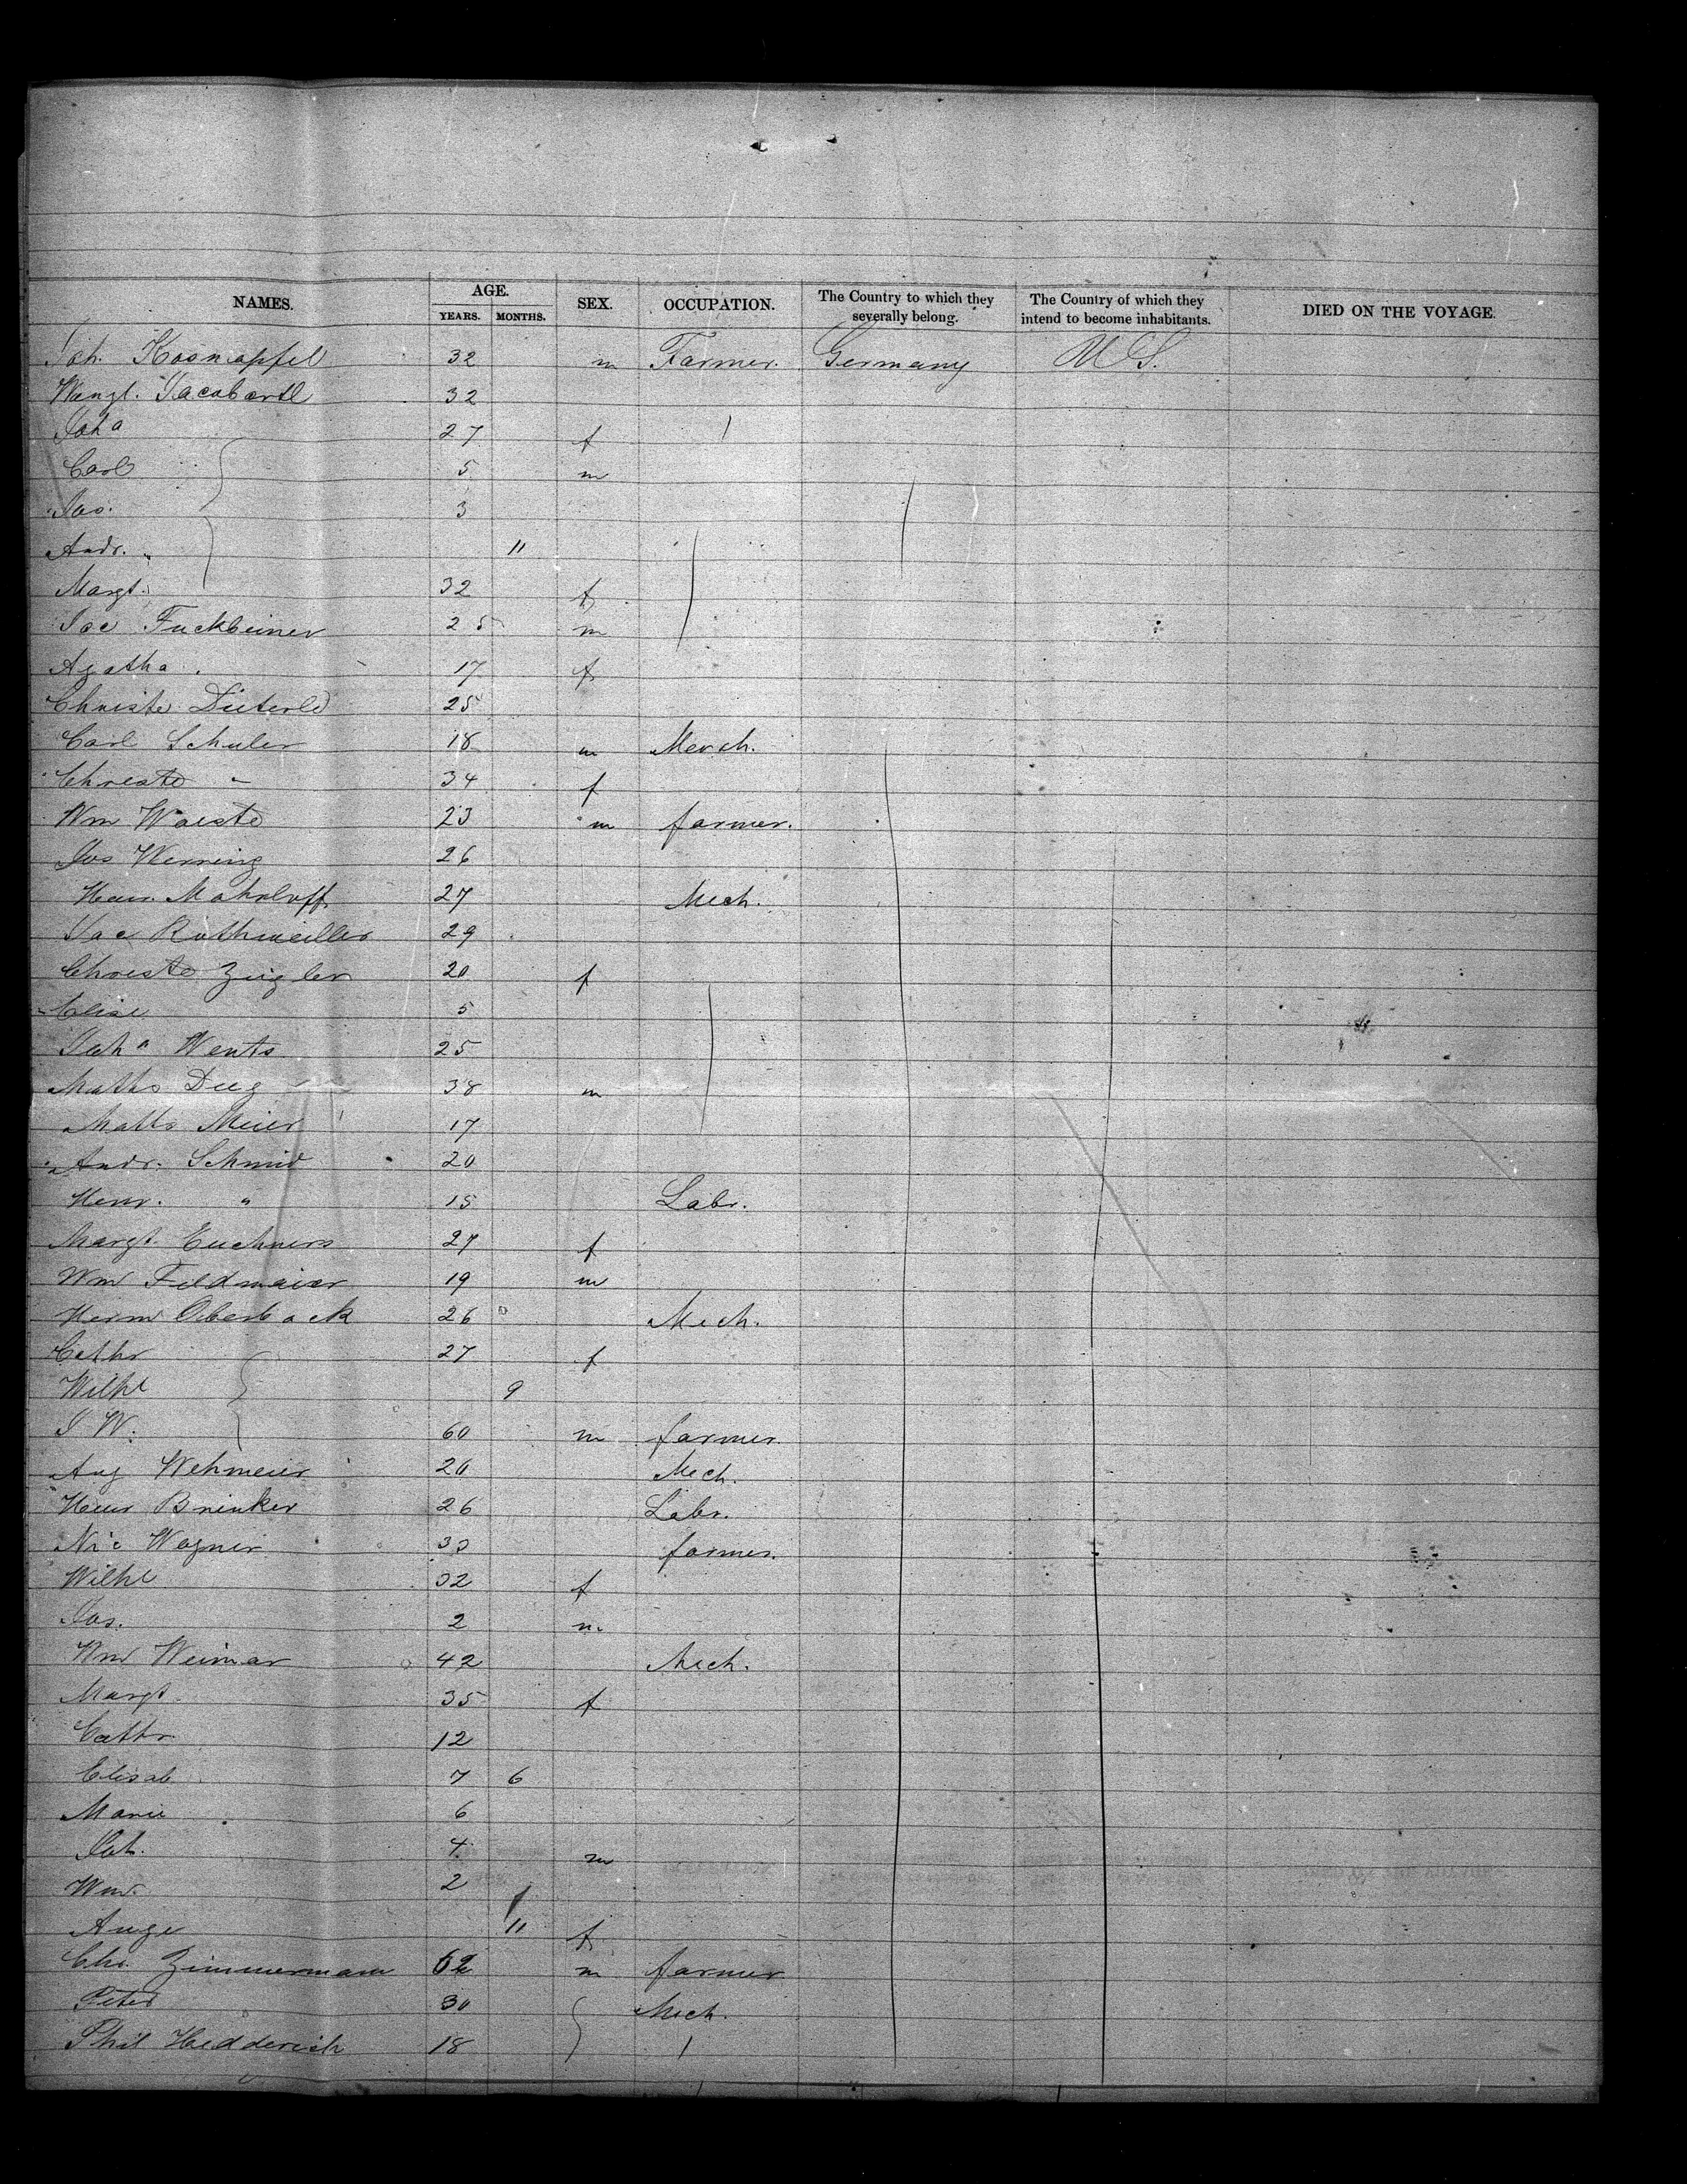 NAMES. AGE. YEARS. MONTHS. SEX. OCCUPATION. The Country to which they severally belong. The Country of which they intend to become inhabitants. DIED ON THE VOYAGE.
Joh. Kosmapfel 32 m Farmer. Germany U S.
Wenzl. Jacobartl 32
Joha 27 f
Carl 5 m
Jos. 3
Andr. " 11
Margt. 32 f
Jac Fuckbeiner 25 m
Agatha 17 f
Christe Dieterle 25
Carl Schuler 18 m Merch.
Christe " 34 f
Wm Waiste 23 m farmer.
Jos Werning 26
Henr. Mahnloff 27 Mech.
Jac Rothweiller 29
Christe Zeigler 20 f
Elise 5
Joha Wents 25
Maths Deeg 38 m
Maths Meier 17
Andr. Schmid 20
Henr. " 15 Labr.
Margt. Euchners 27 f
Wm Feldmaier 19 m
Herm Oberback 26 Mech.
Cathr 27 f
Wilhe 9
J W. 60 m farmer
Aug Wehmeier 20 Mech.
Henr Brinker 26 Labr.
Nic Wagner 33 farmer.
Wilhe 32 f
Jos. 2 m
Wm Weimar 42 Mech.
Margt. 35 f
Cathr. 12
Elisab 7 6
Marie 6
Joh. 4 m
Wm. 2
Auge 11 f
Chr. Zimmermann 62 m farmer
Peter 30 Mech.
Phil Hedderich 18